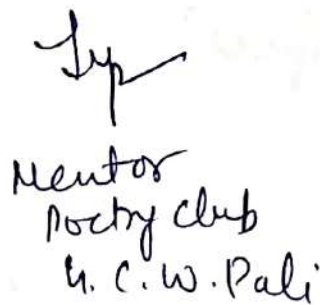 Mentor
Poetry Club
G. C. W. Pali